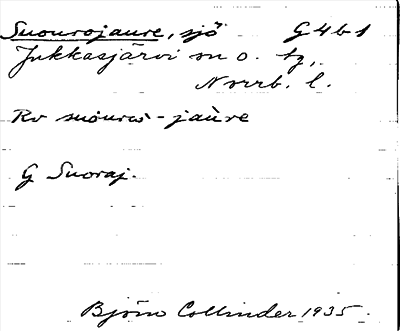 Suourojaure, sjö G4b1
Jukkasjärvi sn o. tg,
Norrb. l.
Rv suourò-jaùre
G Suoraj.
Björn Collinder 1935.